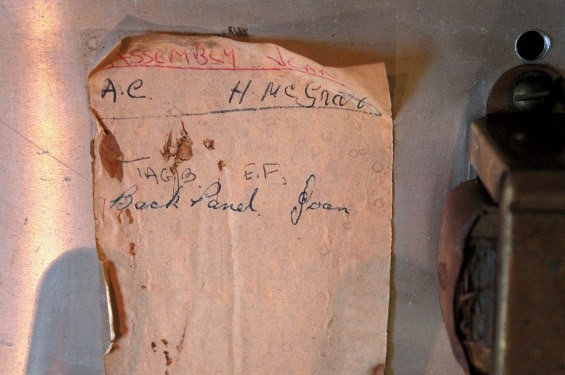 ASSEMBLY Jean
A.C. H. McGra
TAG/B E.F.
Back Panel Joan